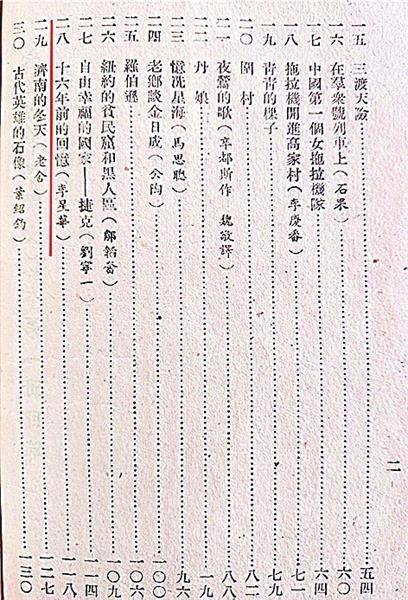 一五 三渡天險……五四
一六 在羣衆號列車上(石果)……六〇
一七 中國第一個女拖拉機隊……六四
一八 拖拉機開進高家村(李慶番)……七一
一九 青青的樑子……七九
二〇 圍村……八二
二一 夜鶯的歌(辛都斯作 魏敬譯)……八八
二二 丹娘……九一
二三 憶洗星海(馬思聰)……九六
二四 老鄉談金日成(公陶)……一〇〇
二五 羅伯遜……一〇六
二六 紐約的貧民窟和黑人區(鄒韜奮)……一〇九
二七 自由幸福的國家——捷克(劉寧一)……一一四
二八 十六年前的回憶(李星華)……一一八
二九 濟南的冬天(老舍)……一二七
三〇 古代英雄的石像(葉紹鈞)……一三〇
二